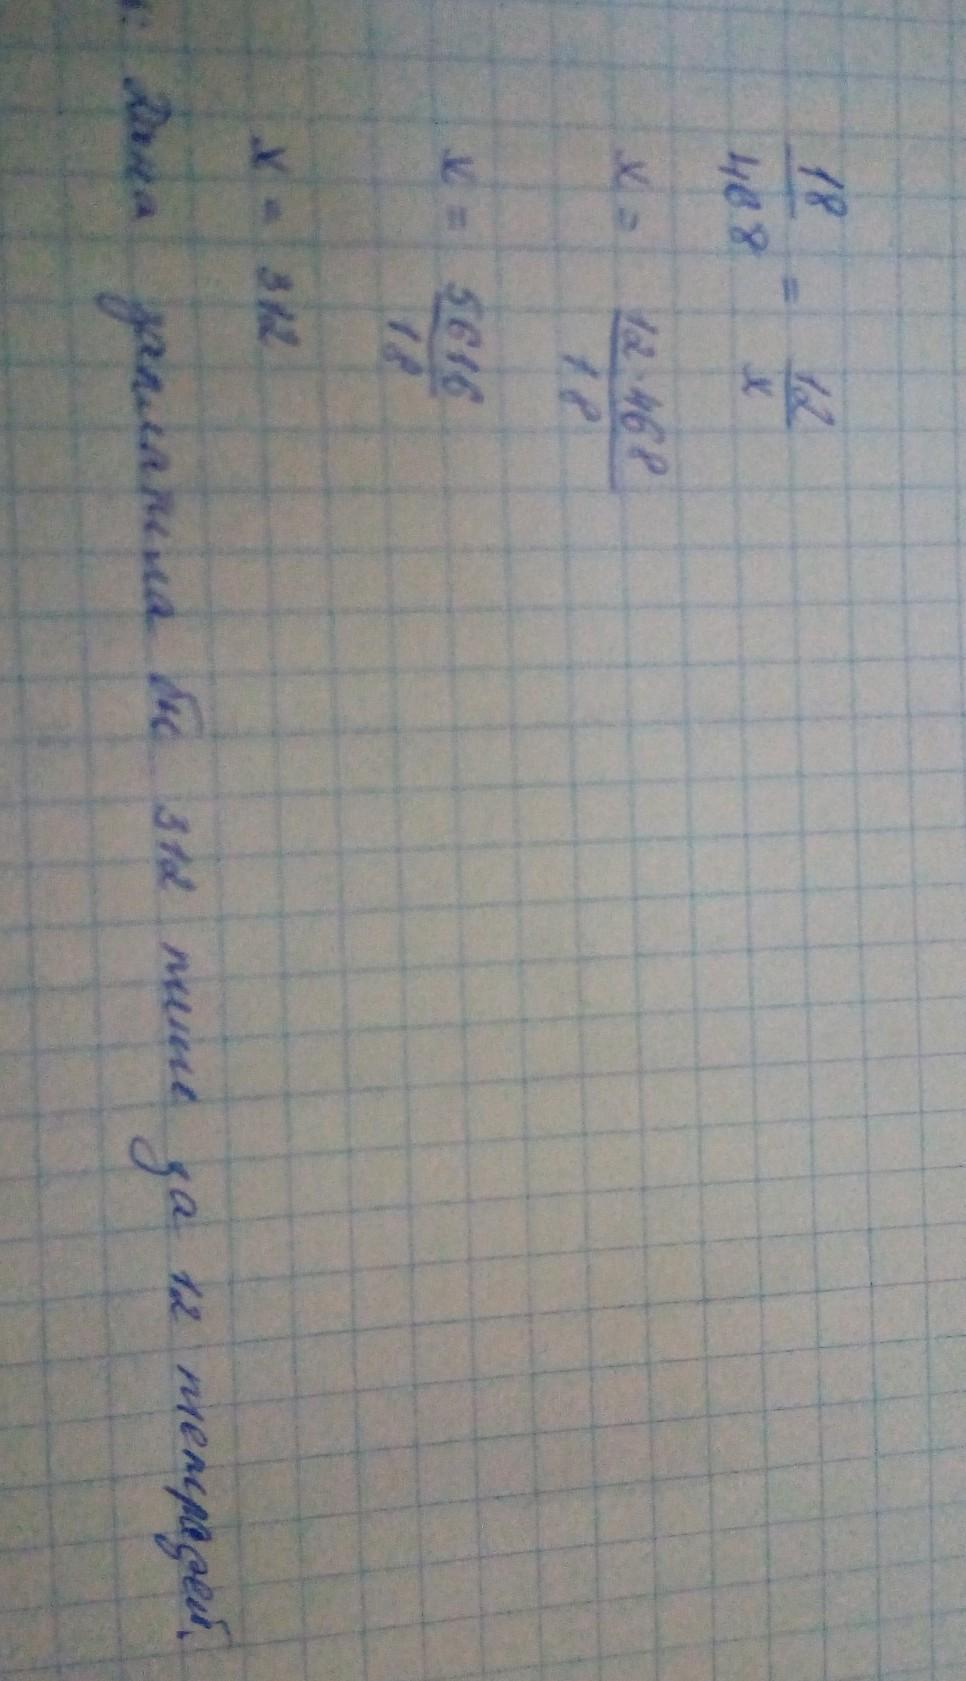 18/468 = 12/x
x = 12·468/18
x = 5616/18
x = 312
Дина заплатила бы 312 тиин за 12 тетрадей.